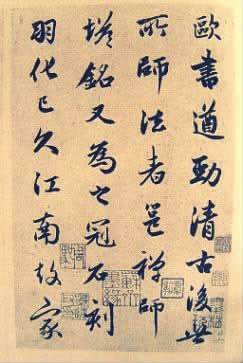 歐書遒勁清古後世
所師法者邕禪師
塔銘又為之冠石刻
羽化已久江南故家